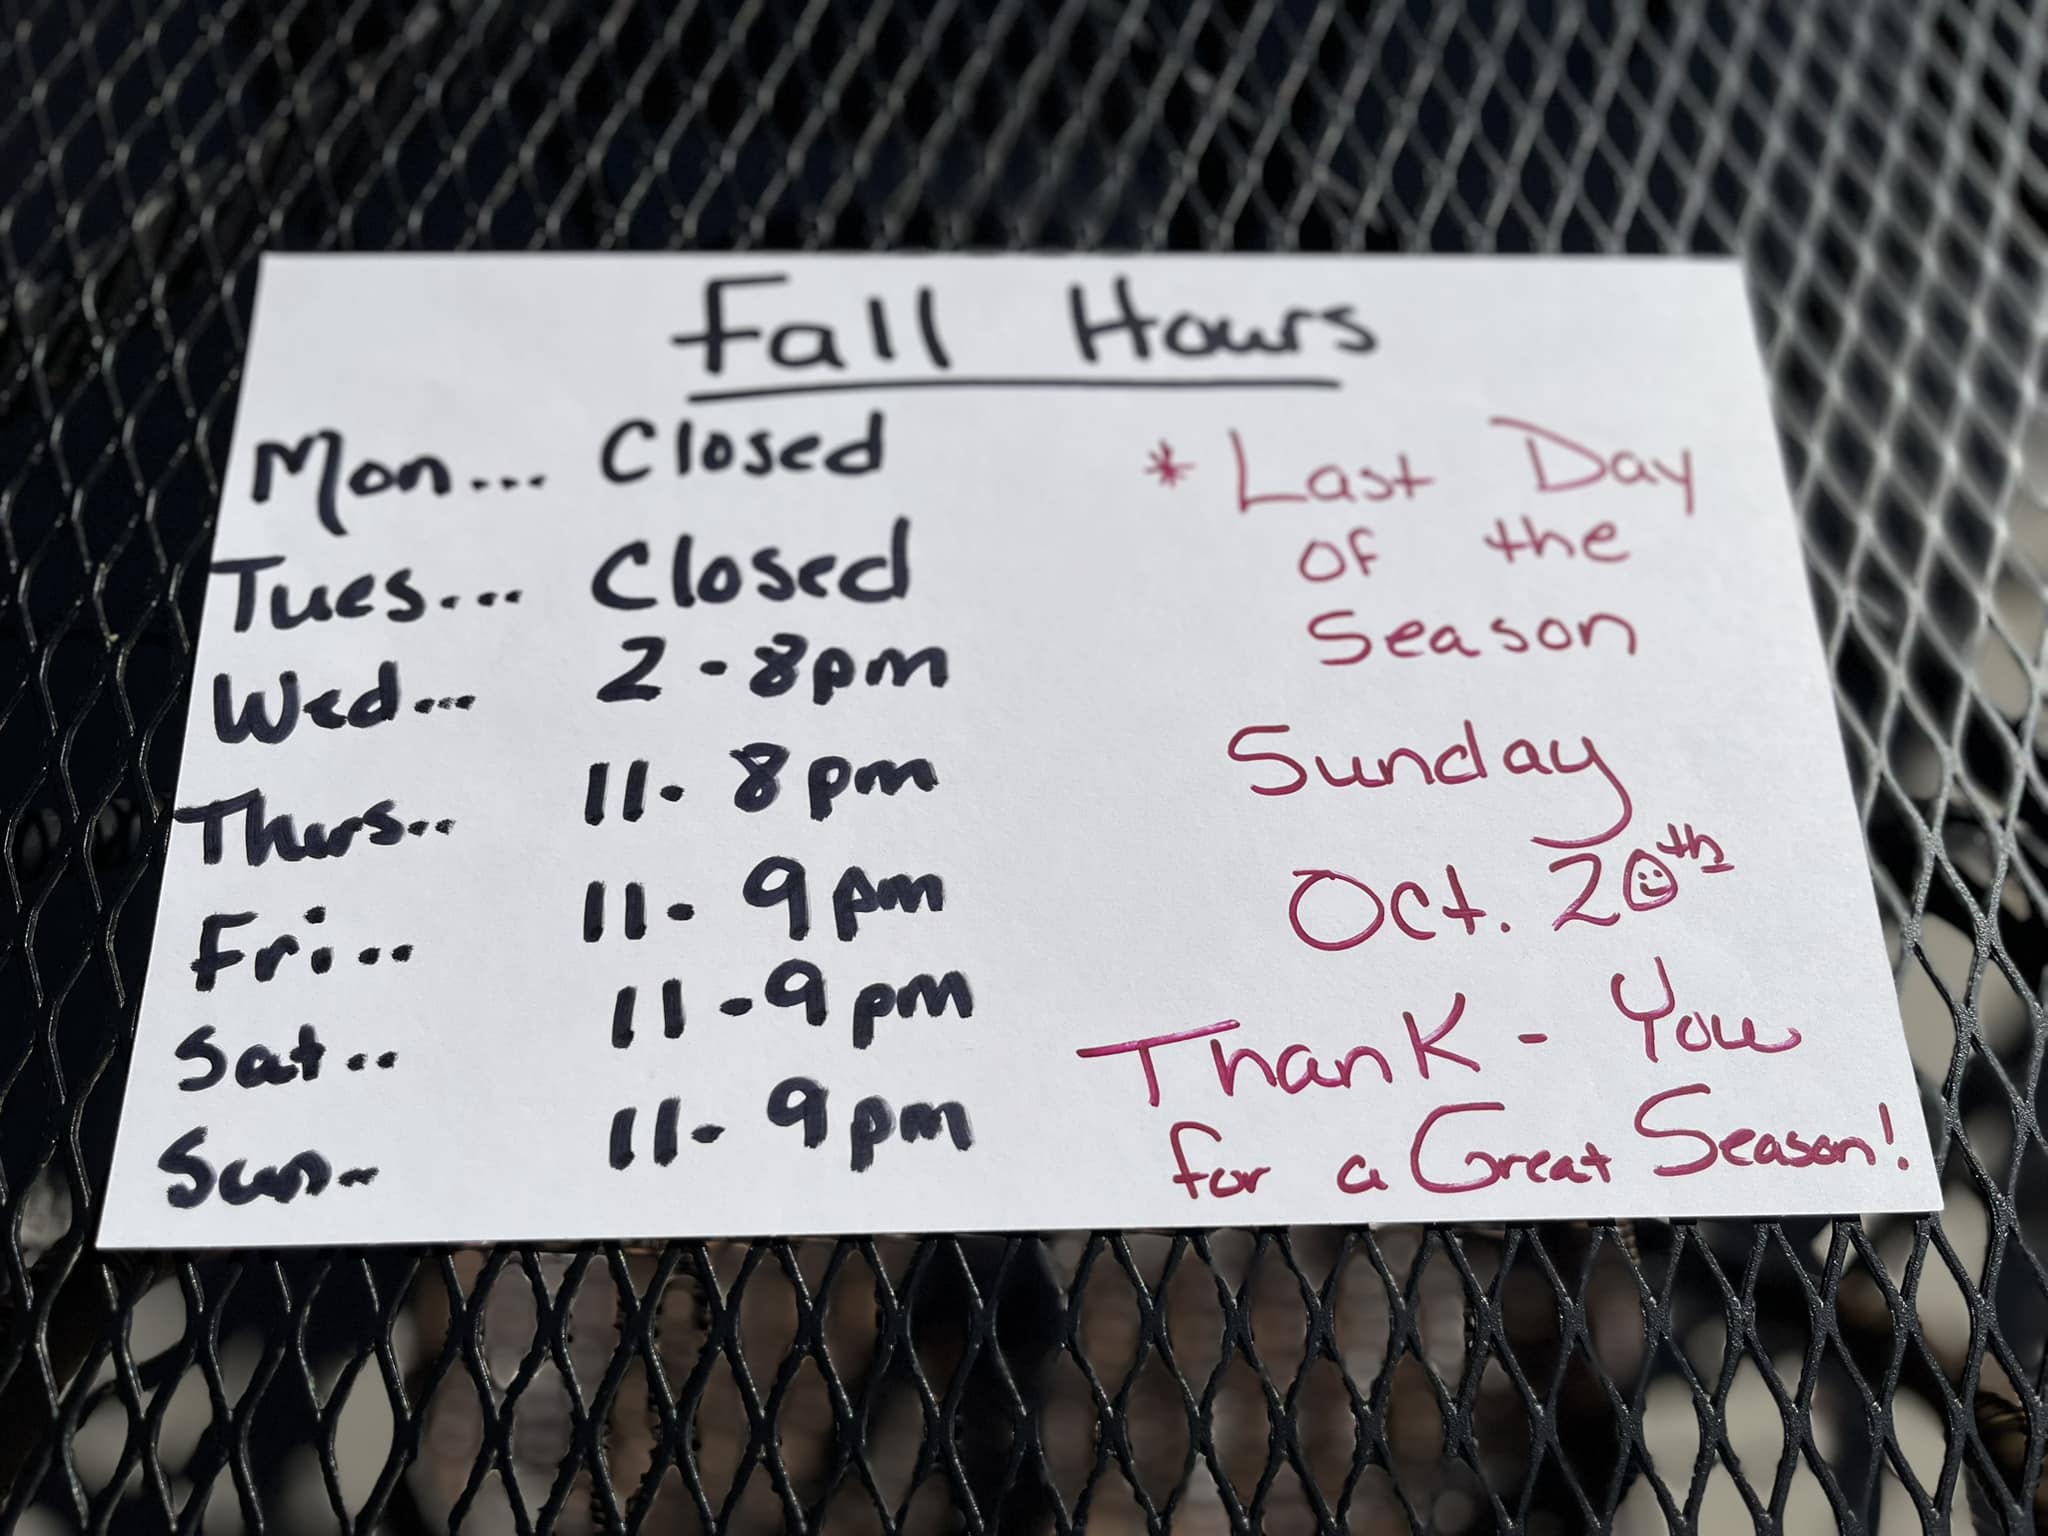 Fall Hours
Mon... Closed
Tues... Closed
Wed... 2-8pm
Thurs.. 11-8pm
Fri.. 11-9pm
Sat.. 11-9pm
Sun.. 11-9pm
* Last Day
of the
Season
Sunday
Oct. 20th
Thank-You
for a Great Season!